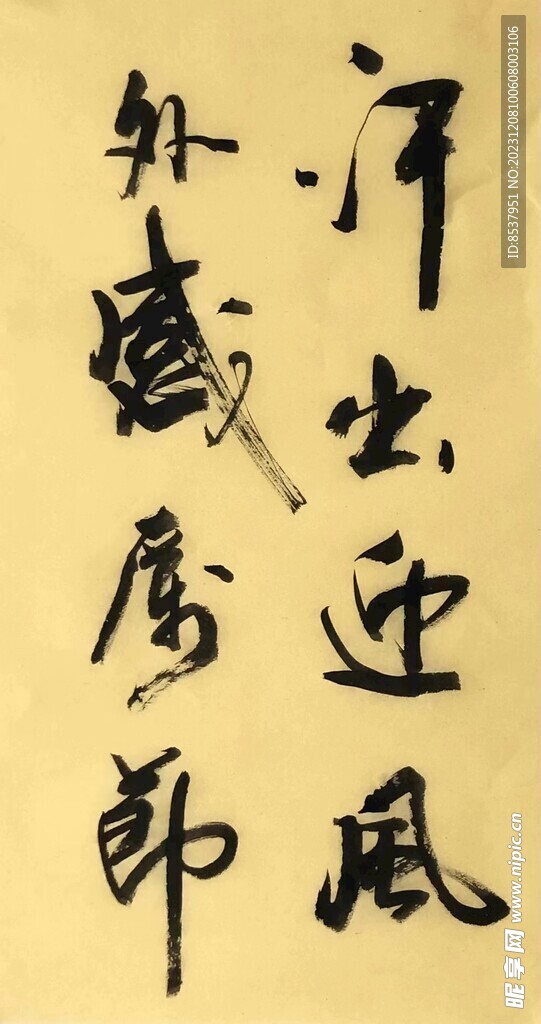 汗出迎風
外感厲節
ID:8537951 NO:20231208100608003106
昵享网 www.nipic.cn